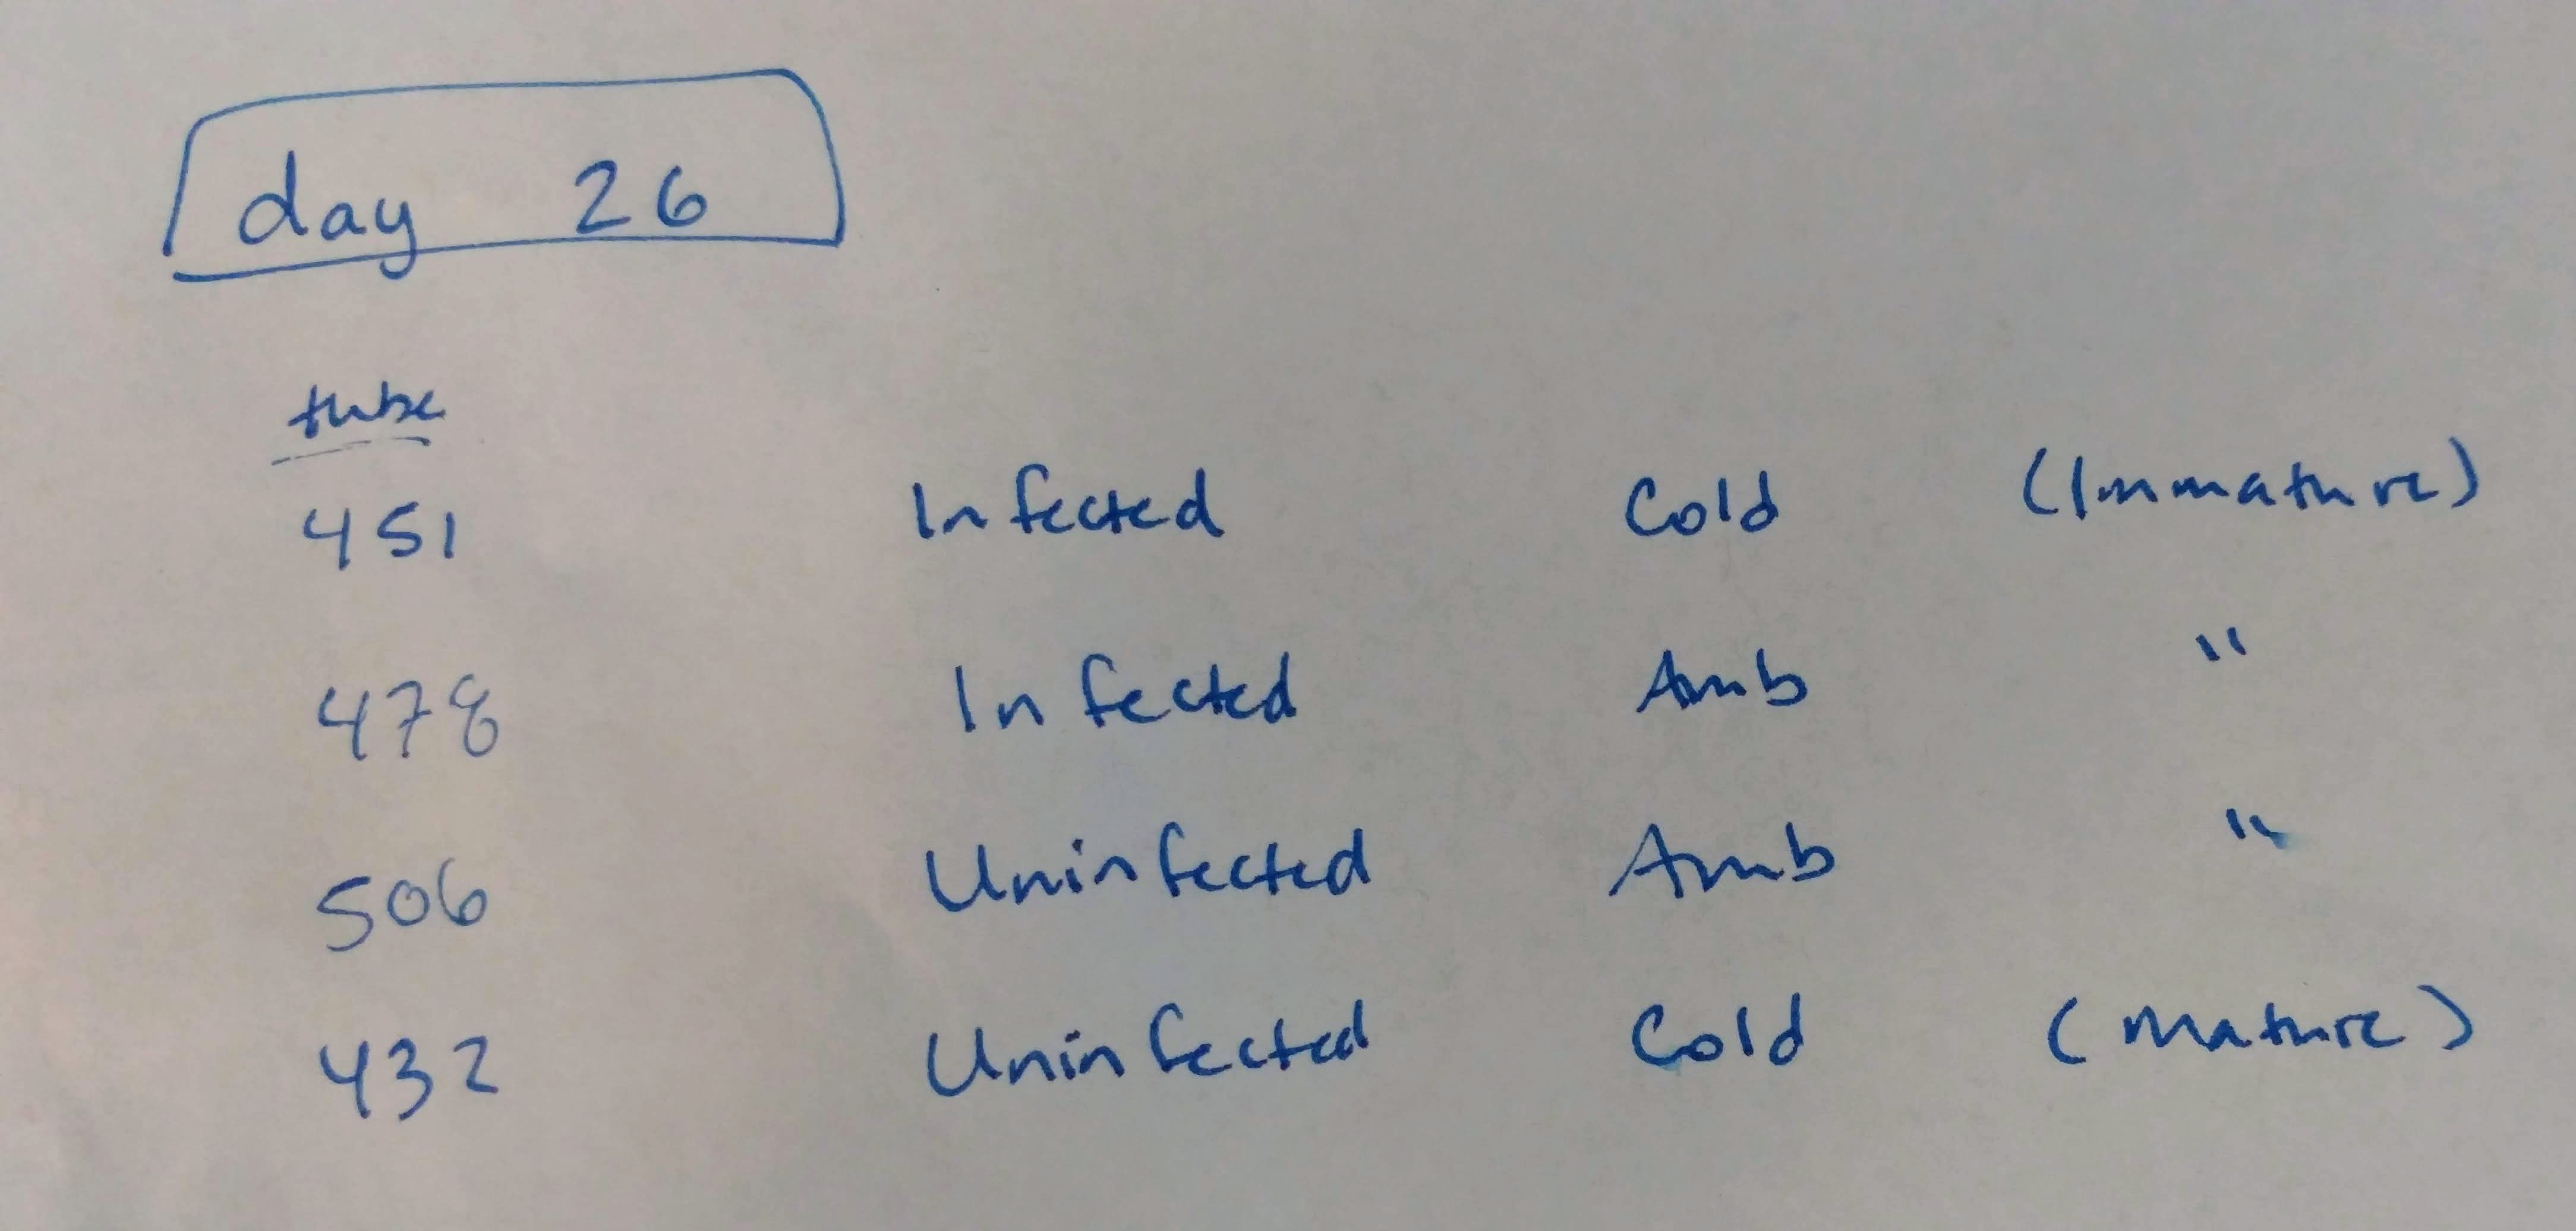 day 26
tube
451 Infected Cold (Immature)
478 Infected Amb "
506 Uninfected Amb "
432 Uninfected Cold (Mature)